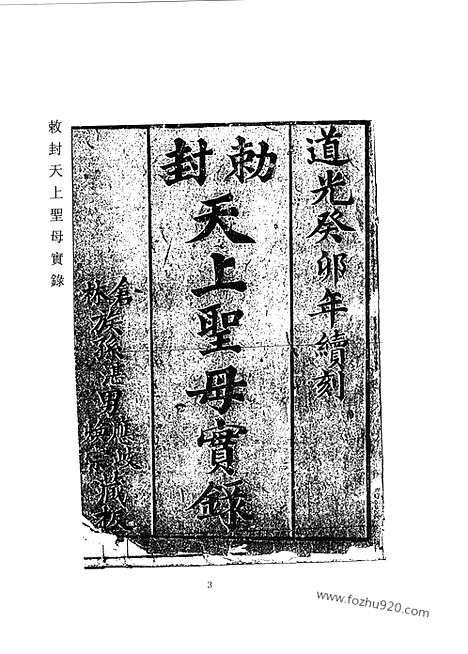 敕封天上聖母實錄
道光癸卯年續刻
勅封
天上聖母實錄
林
族孫
男
藏板
3
www.fozhu920.com